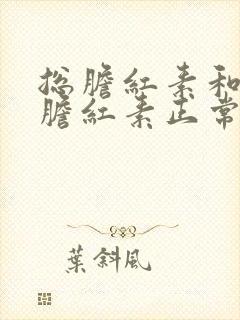 总膽紅素和
膽紅素正常
葉斜風